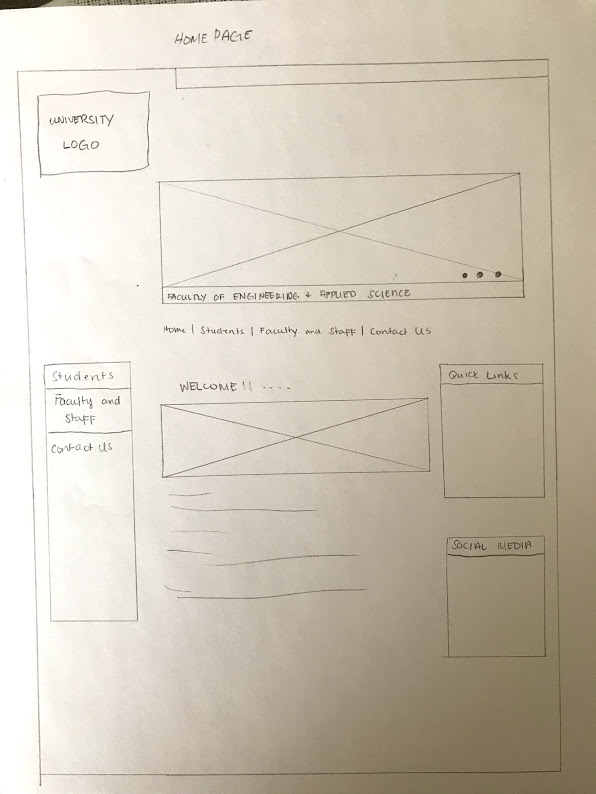 HOME PAGE
UNIVERSITY
LOGO
FACULTY OF ENGINEERING & APPLIED SCIENCE
Home | Students | Faculty and Staff | Contact Us
Students
Faculty and
Staff
Contact Us
WELCOME!! ....
Quick Links
SOCIAL MEDIA